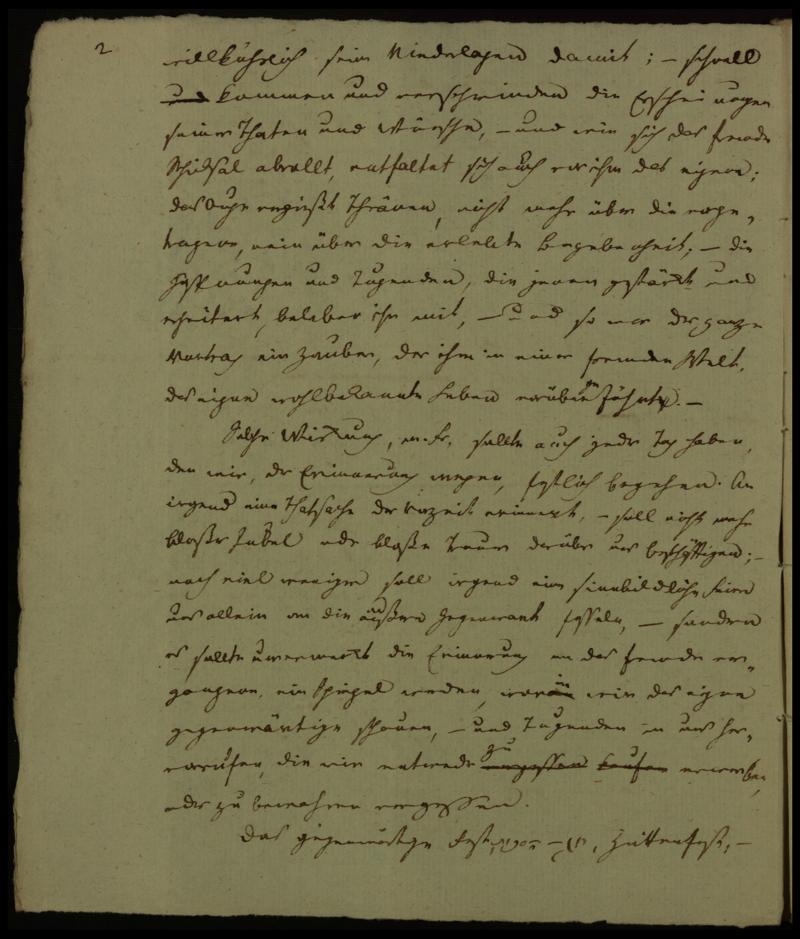 2
willkührlich seine Niederlagen damit; – schnell
und kommen und verschwinden die Erscheinungen
seiner Thaten und Wünsche, – und wie sich das fremde
Schicksal abrollt, entfaltet sich auch vor ihm das eigene;
das Auge vergießt Thränen, nicht mehr über die vorge-
tragene, nein über die erlebte Begebenheit; – die
Hoffnungen und Tugenden, die jenen gestärkt und
erheitert, beleben ihn mit, – und so war der ganze
Vortrag ein Zauber, der ihm in einer fremden Welt,
das eigne wohlbekannte Leben vorüber führte. –
Solche Wirkung, m. Fr. sollte auch jeder Tag haben,
den wir, der Erinnerung wegen, festlich begehen. An
irgend eine Thatsache der Vorzeit erinnert, – soll nicht mehr
bloßer Jubel oder bloße Trauer darüber uns beschäftigen; –
noch viel weniger soll irgend eine sinnbildliche Feier
uns allein an die äußere Gegenwart fesseln, – sondern
es sollte unvermerkt die Erinnerung an das fremde ver-
gangene, ein Spiegel werden, worin wir das eigne
gegenwärtige schauen, – und Tugenden in uns her-
vorrufen, die wir entweder zu erwerben,
oder zu bewahren vergessen.
Das gegenwärtige Fest, Hüttenfest, –